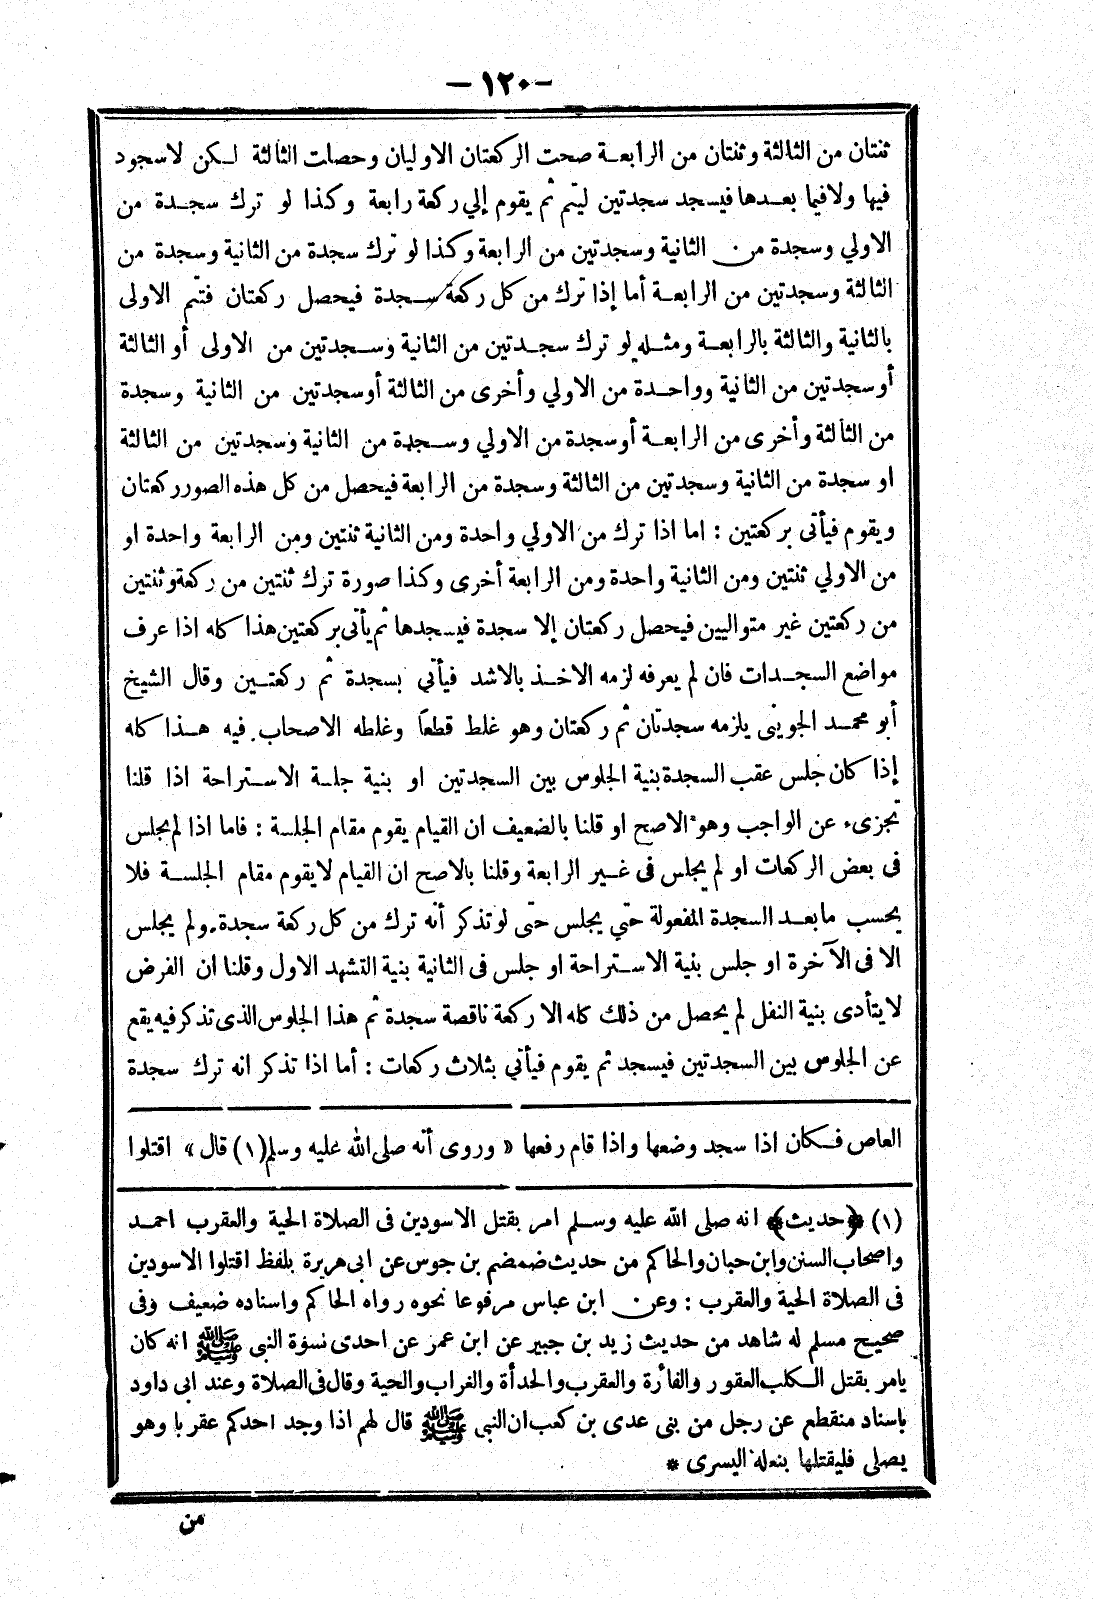 -١٢٠-
ثنتان من الثالثة وثنتان من الرابعة صحت الركعتان الاوليان وحصلت الثالثة لكن لاسجود
فيها ولافيما بعدها فيسجد سجدتين ليتم ثم يقوم إلي ركعة رابعة وكذا لو ترك سجدة من
الاولي وسجدة من الثانية وسجدتين من الرابعة وكذا لو ترك سجدة من الثانية وسجدة من
الثالثة وسجدتين من الرابعة أما إذا ترك من كل ركعة سجدة فيحصل ركعتان فتتم الاولى
بالثانية والثالثة بالرابعة ومثله لو ترك سجدتين من الثانية وسجدتين من الاولى أو الثالثة
أوسجدتين من الثانية وواحدة من الاولي وأخرى من الثالثة أوسجدتين من الثانية وسجدة
من الثالثة وأخرى من الرابعة أوسجدة من الاولي وسجدة من الثانية وسجدتين من الثالثة
او سجدة من الثانية وسجدتين من الثالثة وسجدة من الرابعة فيحصل من كل هذه الصور ركعتان
ويقوم فيأتى بركعتين : اما اذا ترك من الاولي واحدة ومن الثانية ثنتين ومن الرابعة واحدة او
من الاولي ثنتين ومن الثانية واحدة ومن الرابعة أخرى وكذا صورة ترك ثنتين من ركعة وثنتين
من ركعتين غير متواليين فيحصل ركعتان إلا سجدة فيسجدها ثم يأتى بركعتين هذا كله اذا عرف
مواضع السجدات فان لم يعرفه لزمه الاخذ بالاشد فيأتي بسجدة ثم ركعتين وقال الشيخ
أبو محمد الجوينى يلزمه سجدتان ثم ركعتان وهو غلط قطعاً وغلطه الاصحاب فيه هذا كله
إذا كان جلس عقب السجدة بنية الجلوس بين السجدتين او بنية جلسة الاستراحة اذا قلنا
تجزىء عن الواجب وهو الاصح او قلنا بالضعيف ان القيام يقوم مقام الجلسة : فاما اذا لم يجلس
فى بعض الركعات او لم يجلس فى غير الرابعة وقلنا بالاصح ان القيام لايقوم مقام الجلسة فلا
يحسب مابعد السجدة المفعولة حتي يجلس حتى لو تذكر أنه ترك من كل ركعة سجدة ولم يجلس
الا فى الآخرة او جلس بنية الاستراحة او جلس فى الثانية بنية التشهد الاول وقلنا ان الفرض
لايتأدى بنية النفل لم يحصل من ذلك كله الا ركعة ناقصة سجدة ثم هذا الجلوس الذى تذكر فيه يقع
عن الجلوس بين السجدتين فيسجد ثم يقوم فيأتي بثلاث ركعات : أما اذا تذكر انه ترك سجدة
العاص فكان اذا سجد وضعها واذا قام رفعها « وروى أنه صلى الله عليه وسلم (١) قال » اقتلوا
(١) ﴿حديث﴾ انه صلى الله عليه وسلم امر بقتل الاسودين فى الصلاة الحية والعقرب احمد
واصحاب السنن وابن حبان والحاكم من حديث ضمضم بن جوس عن ابى هريرة بلفظ اقتلوا الاسودين
فى الصلاة الحية والعقرب : وعن ابن عباس مرفوعا نحوه رواه الحاكم واسناده ضعيف وفى
صحيح مسلم له شاهد من حديث زيد بن جبير عن ابن عمر عن احدى نسوة النبى ﷺ انه كان
يامر بقتل الكلب العقور والفأرة والعقرب والحدأة والغراب والحية وقال فى الصلاة وعند ابى داود
باسناد منقطع عن رجل من بنى عدى بن كعب ان النبى ﷺ قال لهم اذا وجد احدكم عقربا وهو
يصلى فليقتلها بنعله اليسرى *
من